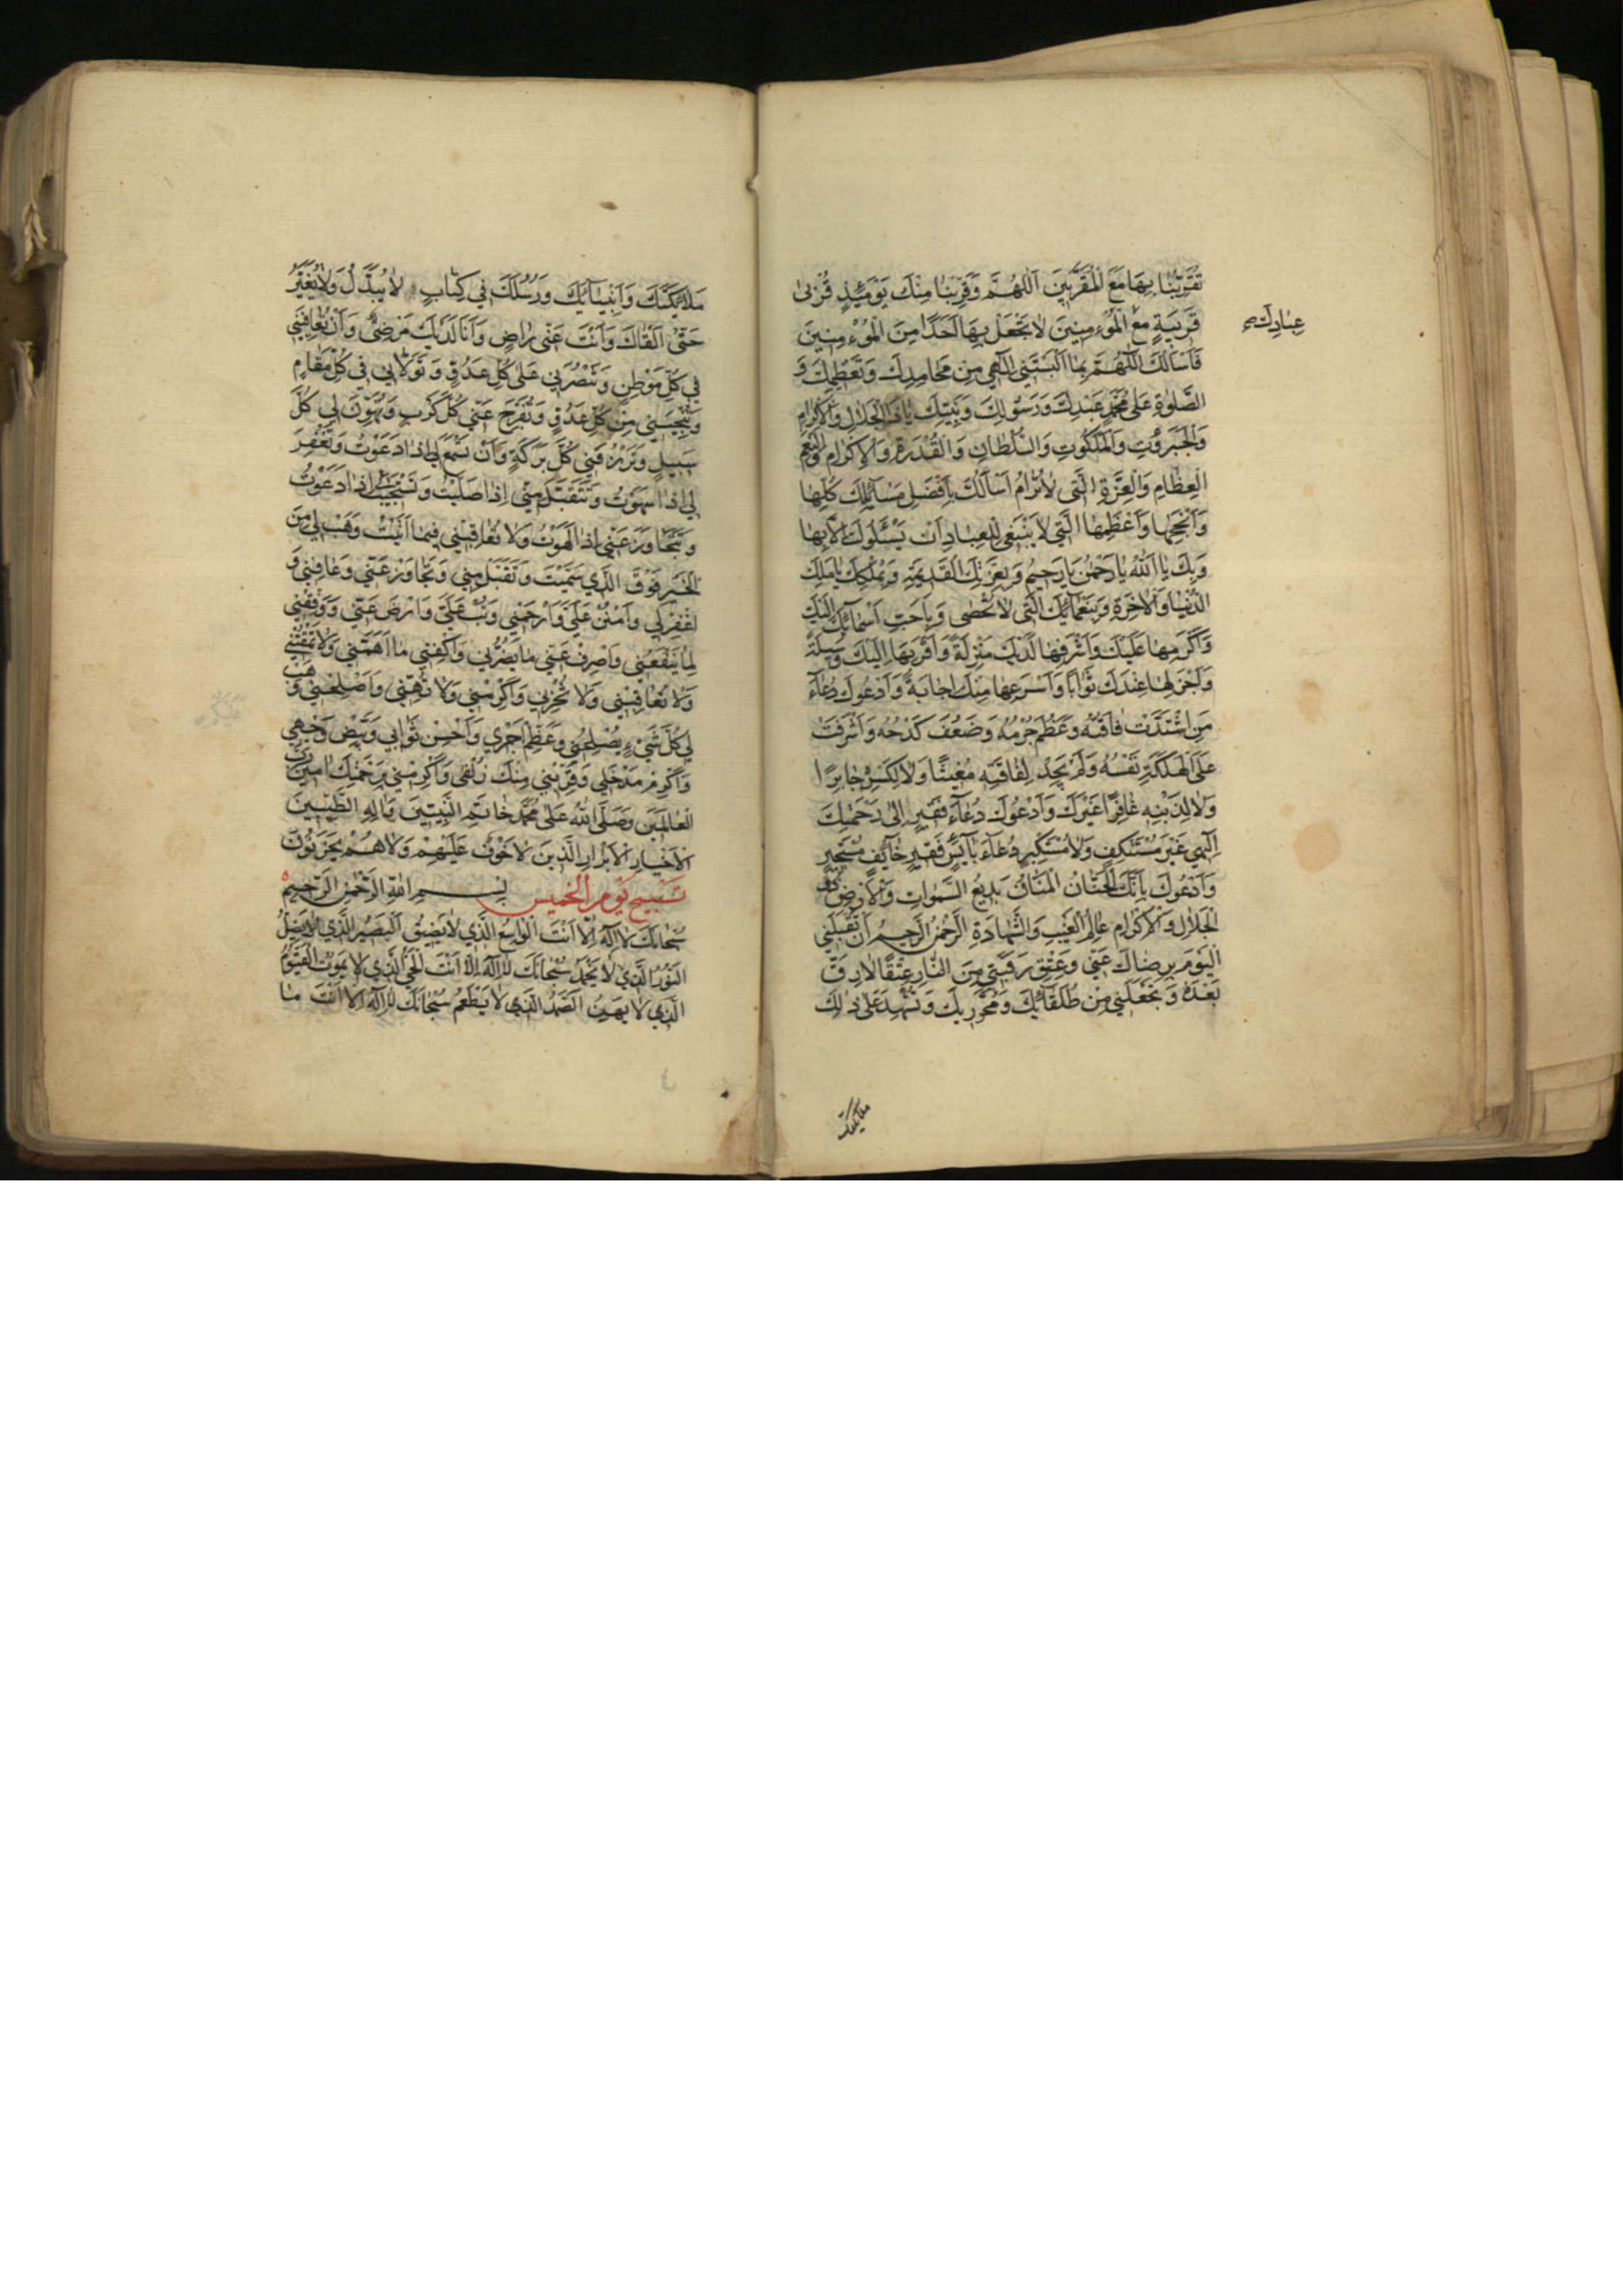 تُقَرِّبُنٰا بِهَا مَعَ الْمُقَرَّبِينَ اَللّٰهُمَّ وَقَرِّبْنٰا مِنْكَ يَوْمَئِذٍ قُرْبىٰ
عِبٰادِكَ
قَرِيبَةٍ مَعَ الْمُؤْمِنِينَ لٰا تَجْعَلْ بِهَا اَحَدًا مِنَ الْمُؤْمِنِينَ
فَاَسْأَلُكَ اللّٰهُمَّ بِمٰا اَلْبَسْتَنِي اِلٰهِي مِنْ مَحٰامِدِكَ وَتَعْظِيمِكَ وَ
الصَّلوٰةِ عَلىٰ مُحَمَّدٍ عَبْدِكَ وَرَسُولِكَ وَنَبِيِّكَ يٰا ذَا الْجَلٰالِ وَالْاِكْرٰامِ
وَالْجَبَرُوتِ وَالْمَلَكُوتِ وَالسُّلْطٰانِ وَالْقُدْرَةِ وَالْاِكْرٰامِ وَالنِّعَمِ
الْعِظٰامِ وَالْعِزَّةِ الَّتِي لٰا تُرٰامُ اَسْأَلُكَ بِاَفْضَلِ مَسٰآئِلِكَ كُلِّهٰا
وَاَنْجَحِهٰا وَاَعْظَمِهَا الَّتِي لٰا يَنْبَغِي لِلْعِبٰادِ اَنْ يَسْئَلُوكَ اِلّٰا بِهٰا
وَبِكَ يٰا اَللّٰهُ يٰا رَحْمٰنُ يٰا رَحِيمُ وَبِعِزَّتِكَ الْقَدِيمَةِ وَبِمُلْكِكَ يٰا مَلِكَ
الدُّنْيٰا وَالْاٰخِرَةِ وَبِنَعْمٰآئِكَ الَّتِي لٰا تُحْصىٰ وَبِاَحَبِّ اَسْمٰآئِكَ اِلَيْكَ
وَاَكْرَمِهٰا عَلَيْكَ وَاَشْرَفِهٰا لَدَيْكَ مَنْزِلَةً وَاَقْرَبِهٰا اِلَيْكَ وَسِيلَةً
وَاَجْزَلِهٰا عِنْدَكَ ثَوٰابًا وَاَسْرَعِهٰا مِنْكَ اِجٰابَةً وَاَدْعُوكَ دُعٰآءَ
مَنِ اشْتَدَّتْ فٰاقَتُهُ وَعَظُمَ جُرْمُهُ وَضَعُفَ كَدْحُهُ وَاَشْرَفَتْ
عَلَى الْهَلَكَةِ نَفْسُهُ وَلَمْ يَجِدْ لِفٰاقَتِهِ مُغِيثًا وَلٰا لِكَسْرِهِ جٰابِرًا
وَلٰا لِذَنْبِهِ غٰافِرًا غَيْرَكَ وَاَدْعُوكَ دُعٰآءَ فَقِيرٍ اِلىٰ رَحْمَتِكَ
اِلٰهِي غَيْرَ مُسْتَنْكِفٍ وَلٰا مُسْتَكْبِرٍ دُعٰآءَ بٰآئِسٍ فَقِيرٍ خٰآئِفٍ مُسْتَجِيرٍ
وَاَدْعُوكَ بِاَنَّكَ الْحَنّٰانُ الْمَنّٰانُ بَدِيعُ السَّمٰوٰاتِ وَالْاَرْضِ ذُو
الْجَلٰالِ وَالْاِكْرٰامِ عٰالِمُ الْغَيْبِ وَالشَّهٰادَةِ الرَّحْمٰنُ الرَّحِيمُ اَنْ تَقْبَلَنِي
الْيَوْمَ بِرِضٰاكَ عَنِّي وَعِتْقِ رَقَبَتِي مِنَ النّٰارِ عِتْقًا لٰا رِقَّ
بَعْدَهُ وَتَجْعَلَنِي مِنْ طُلَقٰآئِكَ وَمُحَرَّرِيكَ وَتُشْهِدَ عَلىٰ ذٰلِكَ
ملائكتك
مَلٰآئِكَتَكَ وَاَنْبِيٰآئَكَ وَرُسُلَكَ فِي كِتٰابٍ لٰا يُبَدَّلُ وَلٰا يُغَيَّرُ
حَتّىٰ اَلْقٰاكَ وَاَنْتَ عَنِّي رٰاضٍ وَاَنَا لَدَيْكَ مَرْضِيٌّ وَاَنْ تُعٰافِيَنِي
فِي كُلِّ مَوْطِنٍ وَتَنْصُرَنِي عَلىٰ كُلِّ عَدُوٍّ وَتَوَلّٰانِي فِي كُلِّ مَقٰامٍ
وَتُنْجِيَنِي مِنْ كُلِّ عَدُوٍّ وَتُفَرِّجَ عَنِّي كُلَّ كَرْبٍ وَتُهَوِّنَ لِي كُلَّ
سَبِيلٍ وَتَرْزُقَنِي كُلَّ بَرَكَةٍ وَاَنْ تَسْمَعَ لِي اِذٰا دَعَوْتُ وَتَغْفِرَ
لِي اِذٰا سَهَوْتُ وَتَتَقَبَّلَ مِنِّي اِذٰا صَلَّيْتُ وَتَسْتَجِيبَ لِي اِذٰا دَعَوْتُ
وَتَتَجٰاوَزَ عَنِّي اِذٰا لَهَوْتُ وَلٰا تُعٰاقِبَنِي فِيمٰا اَتَيْتُ وَهَبْ لِي مِنَ
الْخَيْرِ فَوْقَ الَّذِي سَمَّيْتَ وَتَقَبَّلْ مِنِّي وَتَجٰاوَزْ عَنِّي وَعٰافِنِي وَ
اغْفِرْ لِي وَامْنُنْ عَلَيَّ وَارْحَمْنِي وَتُبْ عَلَيَّ وَارْضَ عَنِّي وَوَفِّقْنِي
لِمٰا يَنْفَعُنِي وَاصْرِفْ عَنِّي مٰا يَضُرُّنِي وَاكْفِنِي مٰا اَهَمَّنِي وَلٰا تَمْقُتْنِي
وَلٰا تُعٰاقِبْنِي وَلٰا تُخْزِنِي وَاَكْرِمْنِي وَلٰا تُهِنِّي وَاَصْلِحْنِي وَهَبْ
لِي كُلَّ شَيْءٍ يُصْلِحُنِي وَعَظِّمْ اَجْرِي وَاَحْسِنْ ثَوٰابِي وَبَيِّضْ وَجْهِي
وَاَكْرِمْ مَدْخَلِي وَقَرِّبْنِي مِنْكَ زُلْفىٰ وَاَكْرِمْنِي بِرَحْمَتِكَ اٰمِينَ رَبَّ
الْعٰالَمِينَ وَصَلَّى اللّٰهُ عَلىٰ مُحَمَّدٍ خٰاتَمِ النَّبِيِّينَ وَاٰلِهِ الطَّيِّبِينَ
الْاَخْيٰارِ الْاَبْرٰارِ الَّذِينَ لٰا خَوْفٌ عَلَيْهِمْ وَلٰا هُمْ يَحْزَنُونَ
تَسْبِيحُ يَوْمِ الْخَمِيسِ بِسْمِ اللّٰهِ الرَّحْمٰنِ الرَّحِيمِ
سُبْحٰانَكَ لٰا اِلٰهَ اِلّٰا اَنْتَ الْوٰاسِعُ الَّذِي لٰا يَضِيقُ الْبَصِيرُ الَّذِي لٰا يَضِلُّ
النُّورُ الَّذِي لٰا يَخْمُدُ سُبْحٰانَكَ لٰا اِلٰهَ اِلّٰا اَنْتَ الْحَيُّ الَّذِي لٰا يَمُوتُ الْقَيُّومُ
الَّذِي لٰا يَهِنُ الصَّمَدُ الَّذِي لٰا يَطْعَمُ سُبْحٰانَكَ لٰا اِلٰهَ اِلّٰا اَنْتَ مٰا